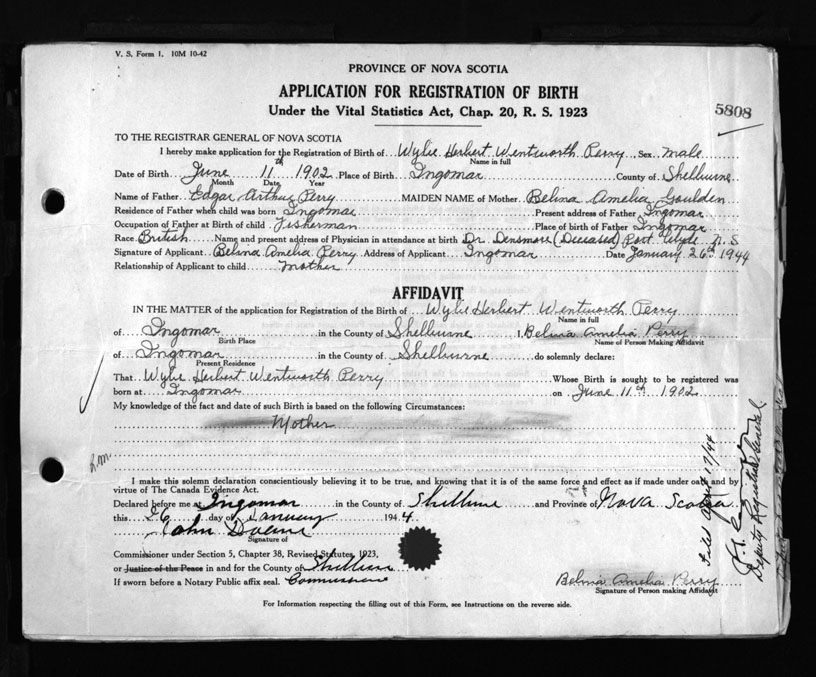 V. S. Form 1. 10M 10-42
PROVINCE OF NOVA SCOTIA
APPLICATION FOR REGISTRATION OF BIRTH
Under the Vital Statistics Act, Chap. 20, R. S. 1923
5808
TO THE REGISTRAR GENERAL OF NOVA SCOTIA
I hereby make application for the Registration of Birth of Wylie Herbert Wentworth Perry, Sex male
Name in full
Date of Birth June 11th 1902 Place of Birth Ingomar County of Shelburne
Month Date Year
Name of Father Edgar Arthur Perry MAIDEN NAME of Mother Belina Amelia Goulden
Residence of Father when child was born Ingomar Present address of Father Ingomar
Occupation of Father at Birth of child Fisherman Place of birth of Father Ingomar
Race British Name and present address of Physician in attendance at birth Dr. Densmore (Deceased) Port Clyde N.S
Signature of Applicant Belina Amelia Perry Address of Applicant Ingomar Date January 26th 1944
Relationship of Applicant to child mother
AFFIDAVIT
IN THE MATTER of the application for Registration of the Birth of Wylie Herbert Wentworth Perry
Name in full
of Ingomar in the County of Shelburne I, Belina Amelia Perry
Birth Place Name of Person Making Affidavit
of Ingomar in the County of Shelburne do solemnly declare:
Present Residence
That Wylie Herbert Wentworth Perry Whose Birth is sought to be registered was
born at Ingomar on June 11th 1902
My knowledge of the fact and date of such Birth is based on the following Circumstances:
Mother
I make this solemn declaration conscientiously believing it to be true, and knowing that it is of the same force and effect as if made under oath and by
virtue of The Canada Evidence Act.
Declared before me at Ingomar in the County of Shelburne and Province of Nova Scotia
this 26 day of January 1944
John
Signature of
Commissioner under Section 5, Chapter 38, Revised Statutes, 1923,
or Justice of the Peace in and for the County of Shelburne
If sworn before a Notary Public affix seal. Commissioner
Belina Amelia Perry
Signature of Person making Affidavit
For Information respecting the filling out of this Form, see Instructions on the reverse side.
Filed April 17/44
Deputy Registrar General